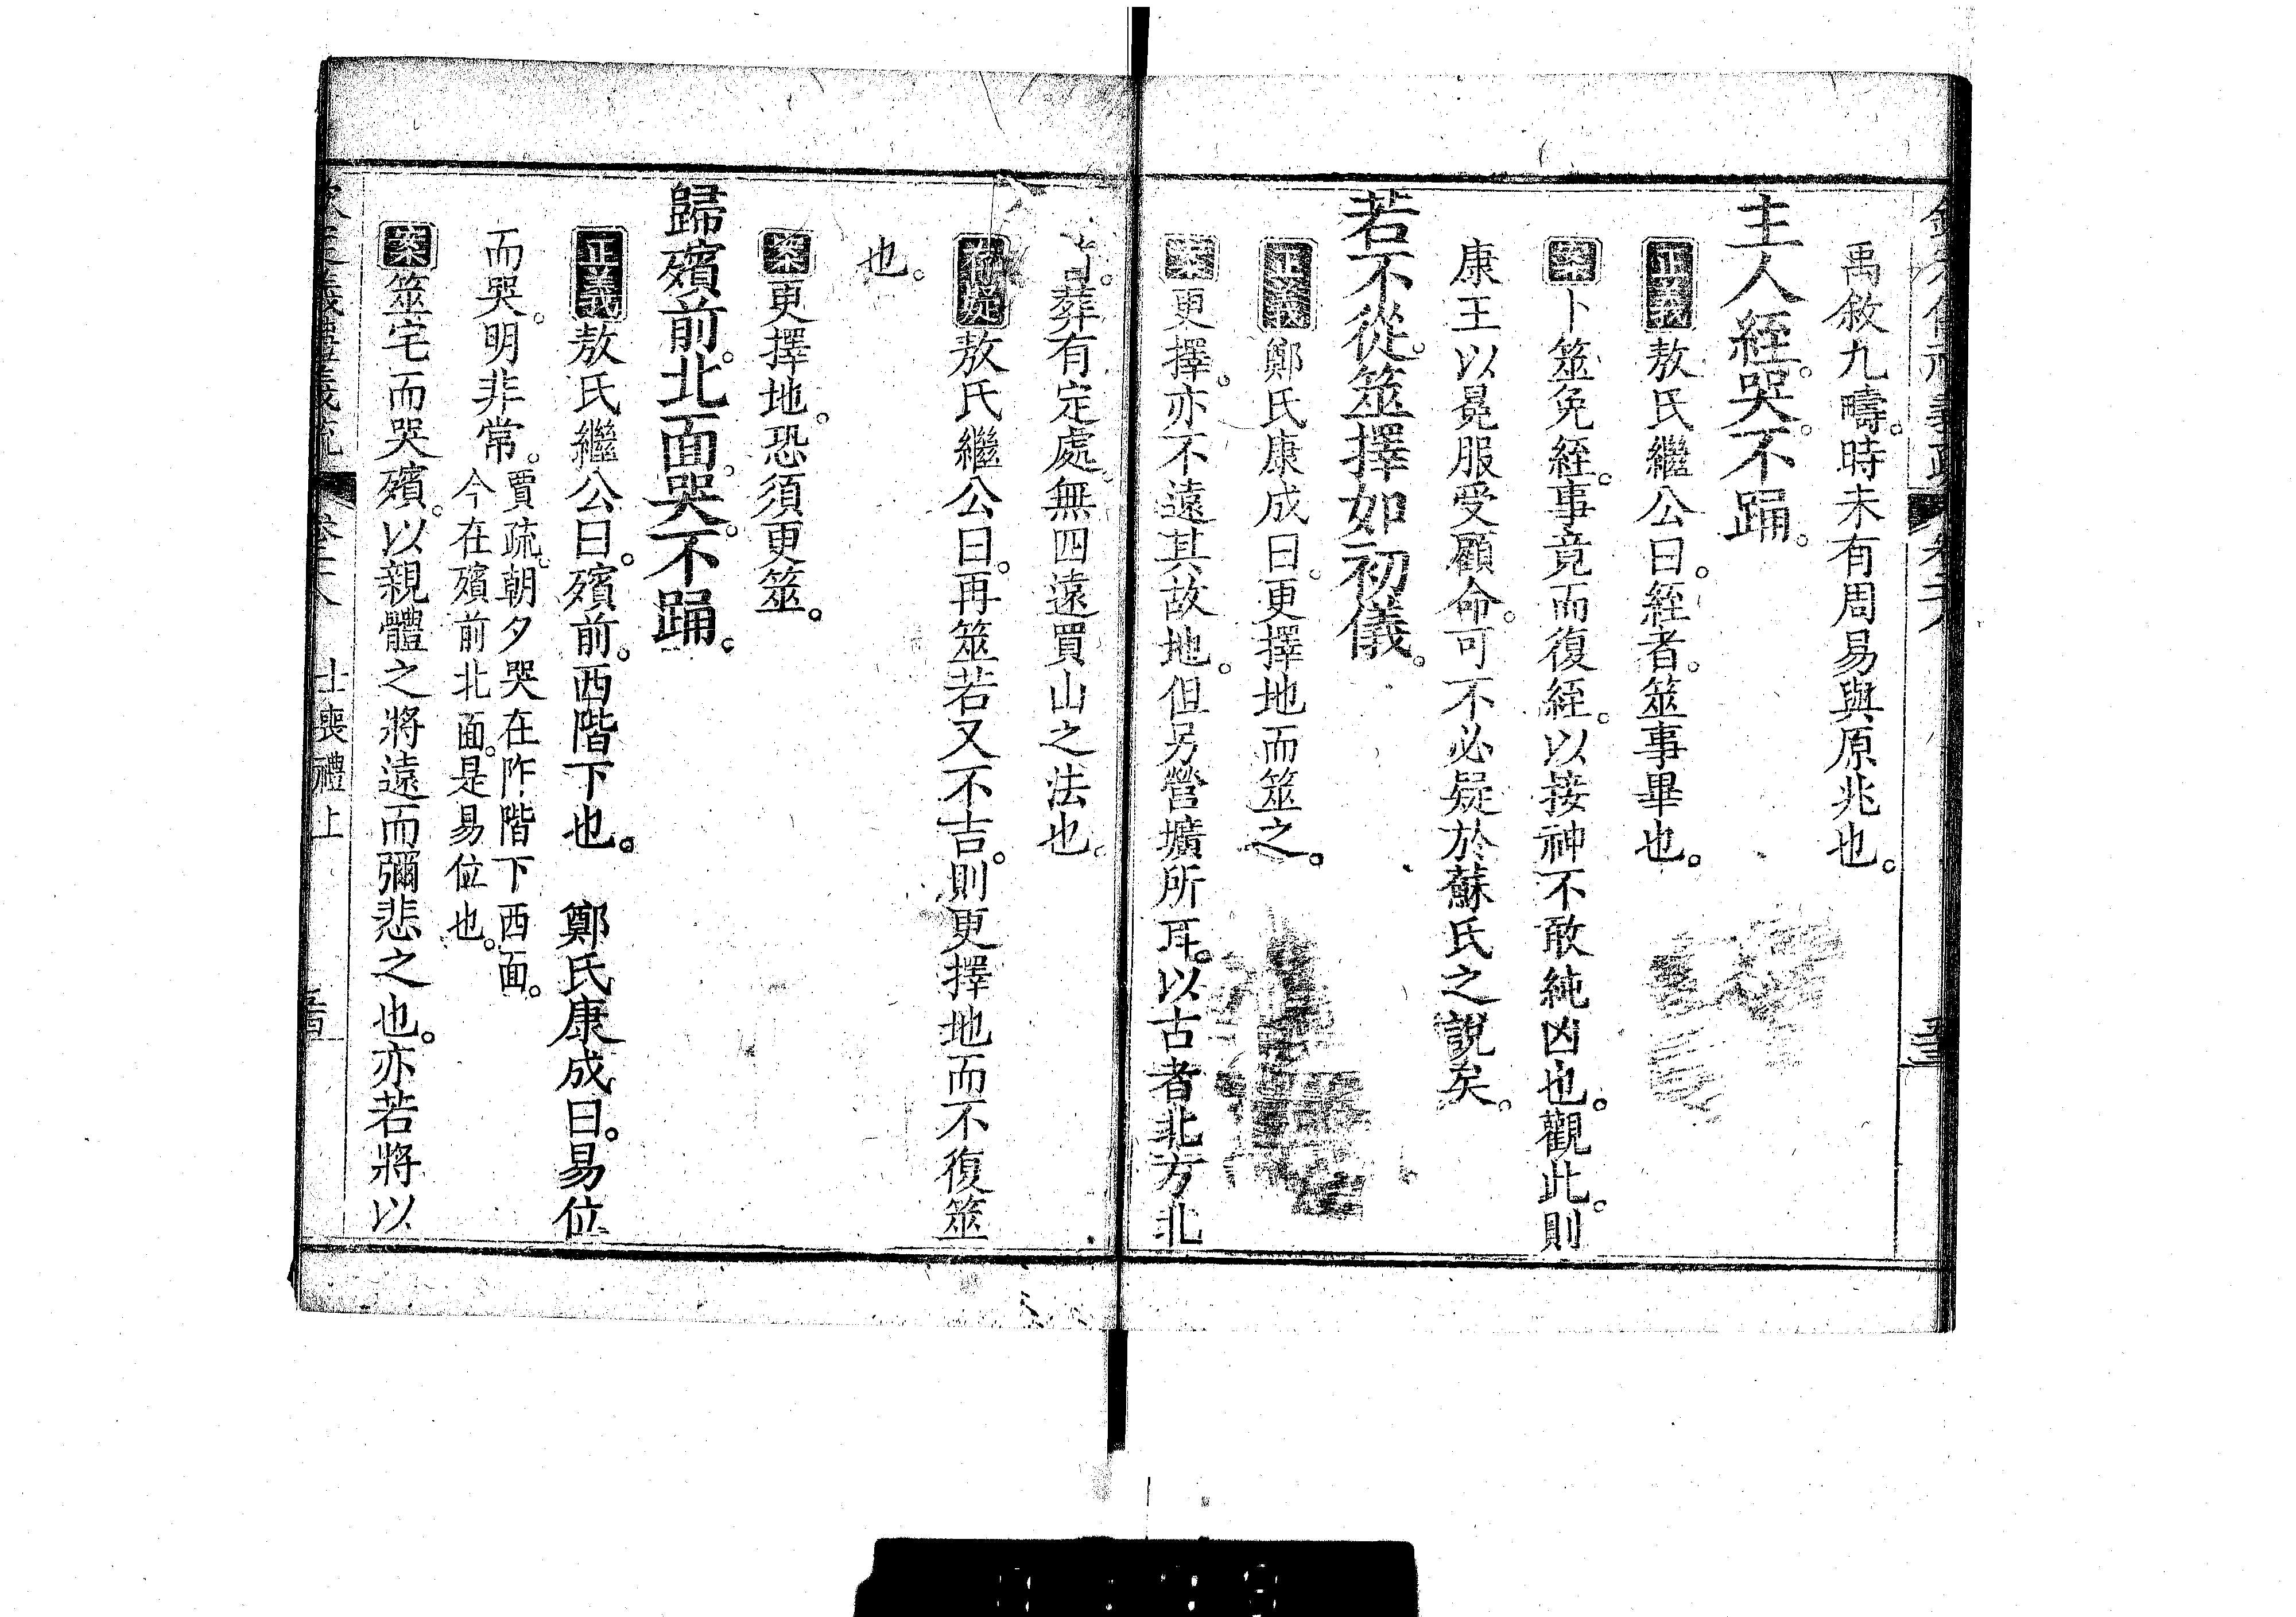 禹敘九疇。時未有周易與原兆也。
主人絰。哭。不踊。
正義敖氏繼公曰。絰者。筮事畢也。
案卜筮免絰。事竟而復絰。以接神不敢純凶也。觀此。則
康王以冕服受顧命。可不必疑於蘇氏之說矣。
若不從。筮擇如初儀。
正義鄭氏康成曰。更擇地而筮之。
案更擇。亦不遠其故地。但另營壙所耳。以古者北方北
葬有定處。無四遠買山之法也。
存疑敖氏繼公曰。再筮若又不吉。則更擇地而不復筮
也。
案更擇地。恐須更筮。
歸殯前。北面。哭。不踊。
正義敖氏繼公曰。殯前。西階下也。 鄭氏康成曰。易位
而哭。明非常。賈疏。朝夕哭在阼階下西面。
今在殯前北面。是易位也。
案筮宅而哭殯。以親體之將遠而彌悲之也。亦若將以
士喪禮上